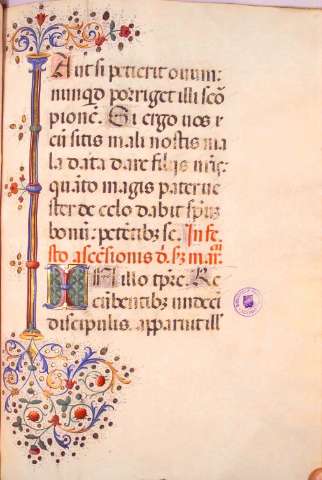 Aut si petierit ouum:
nunqd porriget illi scor
pionē. Si ergo uos c
cū sitis mali nostis ma
la data dare filijs
quāto magis pater ue
ster de celo dabit spūz
bonū petētibz se. In fe
sto ascēsionis d. sz mar.
In illo tpre. Re
cūbentibz undeci
discipulis. apparuit ill